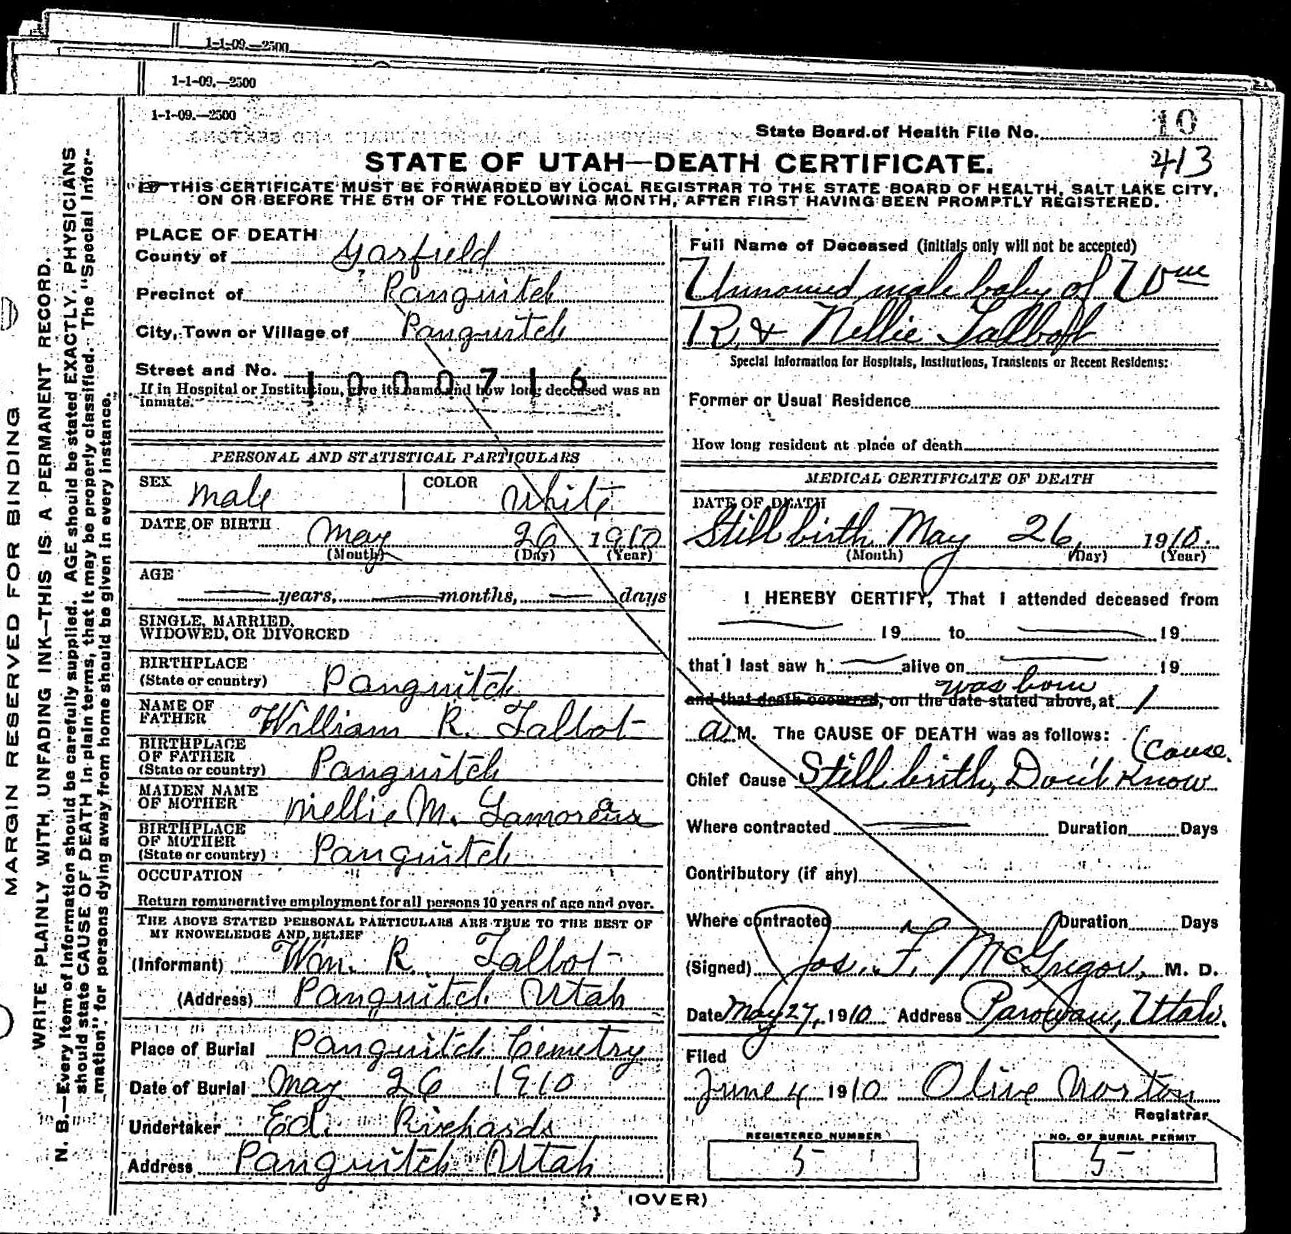 1-1-09.—2500
1-1-09.—2500
1-1-09.—2500
State Board of Health File No. 10
413
STATE OF UTAH—DEATH CERTIFICATE.
☞ THIS CERTIFICATE MUST BE FORWARDED BY LOCAL REGISTRAR TO THE STATE BOARD OF HEALTH, SALT LAKE CITY,
ON OR BEFORE THE 5TH OF THE FOLLOWING MONTH, AFTER FIRST HAVING BEEN PROMPTLY REGISTERED.
MARGIN RESERVED FOR BINDING
WRITE PLAINLY WITH UNFADING INK—THIS IS A PERMANENT RECORD.
N. B.—Every item of information should be carefully supplied. AGE should be stated EXACTLY. PHYSICIANS
should state CAUSE OF DEATH in plain terms, that it may be properly classified. The "Special Infor-
mation" for persons dying away from home should be given in every instance.
PLACE OF DEATH
County of Garfield
Precinct of Panguitch
City, Town or Village of Panguitch
Street and No.
1000716
If in Hospital or Institution, give its name and how long deceased was an
inmate.
PERSONAL AND STATISTICAL PARTICULARS
SEX Male COLOR White
DATE OF BIRTH May 26 1910
(Month) (Day) (Year)
AGE
years, months, days
SINGLE, MARRIED,
WIDOWED, OR DIVORCED
BIRTHPLACE
(State or country) Panguitch
NAME OF
FATHER William R. Talbot
BIRTHPLACE
OF FATHER
(State or country) Panguitch
MAIDEN NAME
OF MOTHER Nellie M. Lamoreaux
BIRTHPLACE
OF MOTHER
(State or country) Panguitch
OCCUPATION
Return remunerative employment for all persons 10 years of age and over.
THE ABOVE STATED PERSONAL PARTICULARS ARE TRUE TO THE BEST OF
MY KNOWELEDGE AND BELIEF
(Informant) Wm. R. Talbot
(Address) Panguitch Utah
Place of Burial Panguitch Cemetry
Date of Burial May 26 1910
Undertaker Ed. Richards
Address Panguitch Utah
Full Name of Deceased (initials only will not be accepted)
Unnamed male baby of Wm
R. & Nellie Talbott
Special Information for Hospitals, Institutions, Transients or Recent Residents:
Former or Usual Residence
How long resident at place of death
MEDICAL CERTIFICATE OF DEATH
DATE OF DEATH
Still birth May 26, 1910.
(Month) (Day) (Year)
I HEREBY CERTIFY, That I attended deceased from
19 to 19
that I last saw h alive on 19
was born
and that death occurred, on the date stated above, at 1
a. M. The CAUSE OF DEATH was as follows:
(cause.
Chief Cause Still birth, Don't know
Where contracted Duration Days
Contributory (if any)
Where contracted Duration Days
(Signed) Jos. F. McGregor, M. D.
Date May 27, 1910 Address Parowan, Utah.
Filed
June 4 1910 Olive Norton
Registrar
REGISTERED NUMBER
5
NO. OF BURIAL PERMIT
5
(OVER)